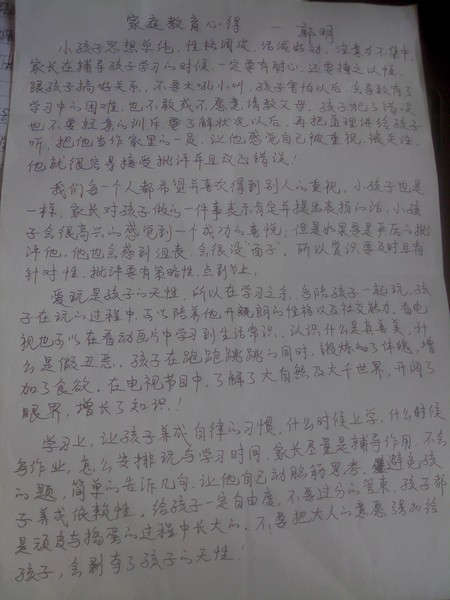 家庭教育心得 — 郭明
小孩子思想单纯,性格调皮,活泼好动,注意力不集中,
家长在辅导孩子学习的时候,一定要有耐心,还要持之以恒,
跟孩子搞好关系,不要大吼小叫,孩子害怕以后,会导致有了
学习中的困难,也不敢或不愿意请教父母,孩子犯了错误
也不要轻意的训斥,要了解状况以后,再把道理讲给孩子
听,把他当作家里的一员,让他感觉自己被重视,被关注,
他就很容易接受批评并且改正错误!
我们每一个人都希望并喜欢得到别人的重视,小孩子也是
一样,家长对孩子做的一件事表示肯定并提出表扬的话,小孩
子会很高兴的感觉到一个成功的喜悦;但是如果要是严厉的批
评他,他也会感到沮丧,会很没“面子”,所以赏识要及时且有
针对性,批评要有策略性,点到为止。
爱玩是孩子的天性,所以在学习之余,多陪孩子一起玩,孩
子在玩的过程中,可以培养他开朗的性格以及社交能力,看电
视也可以在看动画片中学习到生活常识,认识什么是真善美,什
么是假丑恶,孩子在跑跑跳跳的同时,锻炼的了体魄,增
加了食欲,在电视节目中,了解了大自然及大千世界,开阔了
眼界,增长了知识!
学习上,让孩子养成自律的习惯,什么时候上学,什么时候
写作业,怎么安排玩与学习时间,家长尽量是辅导作用,不会
的题,简单的告诉几句,让他自己动脑筋思考,避免孩
子养成依赖性,给孩子一定自由度,不要过分的管束,孩子都
是顽皮与捣蛋的过程中长大的,不要把大人的意愿强加给
孩子,会剥夺了孩子的天性!